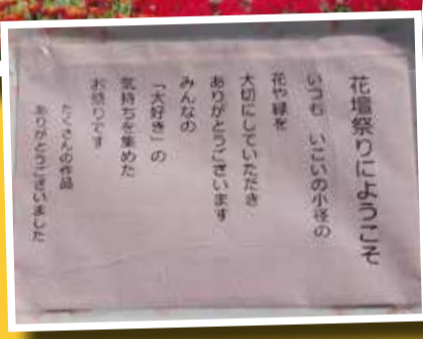 花壇祭りにようこそ
いつも　いこいの小径の
花や緑を
大切にしていただき
ありがとうございます
みんなの
「大好き」の
気持ちを集めた
お祭りです
たくさんの作品
ありがとうございました